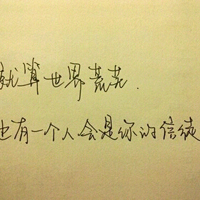 就算世界荒芜.
也有一个人会是你的信徒